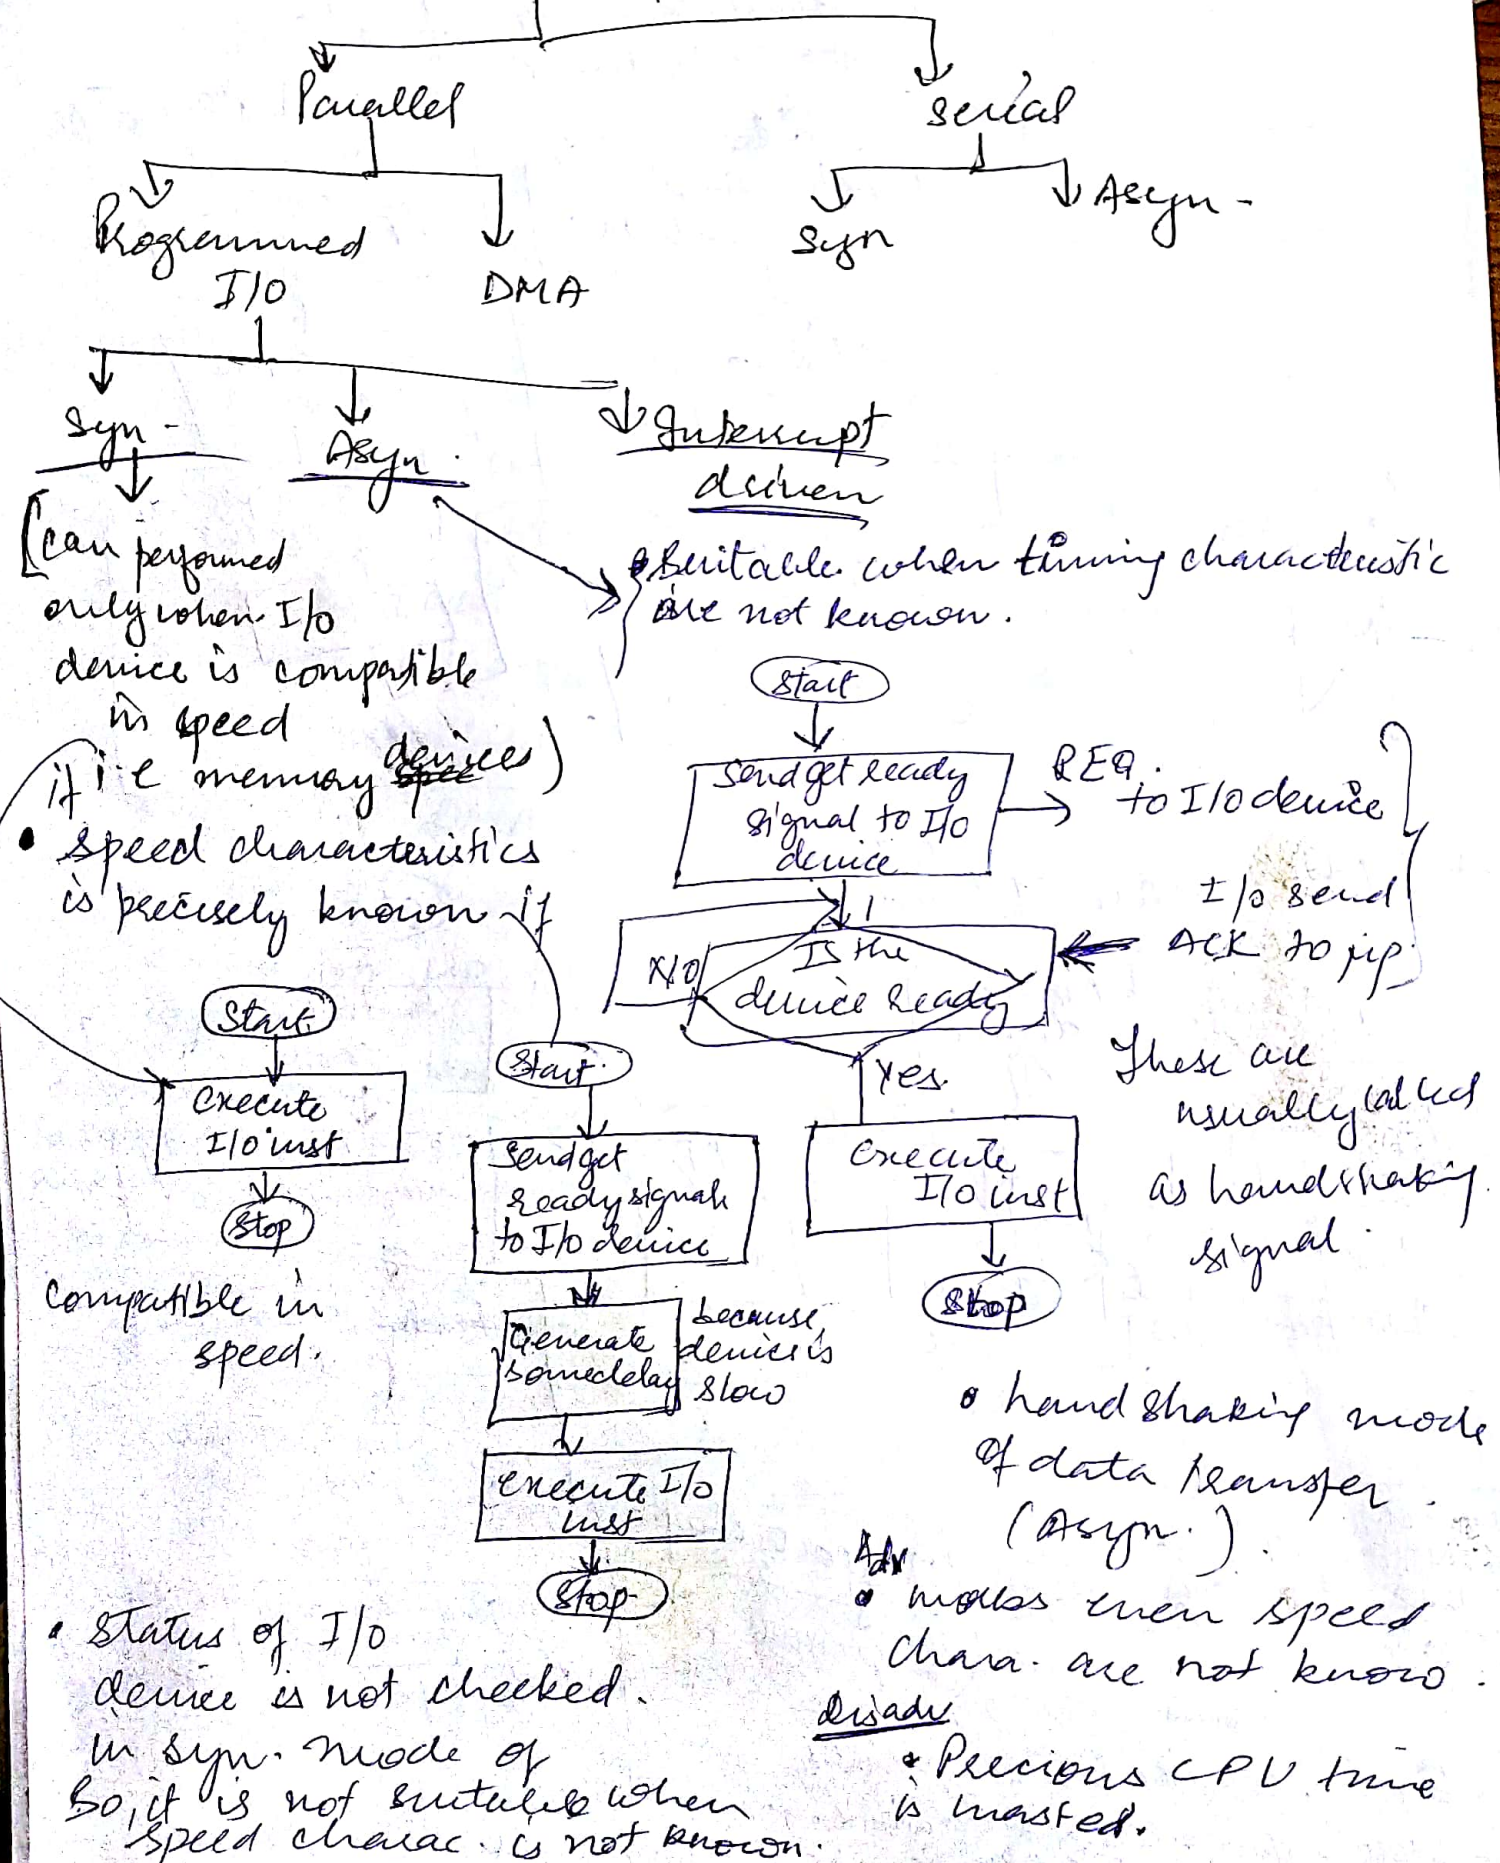 Parallel
serial
Programmed
I/O
DMA
Syn
Asyn -
Syn -
Asyn .
Interrupt
driven
[can performed
only when I/o
device is compatible
in speed
if i.e memory devices)
• speed characteristics
is precisely known if
Start
Execute
I/O inst
Stop
Compatible in
speed.
Start
Send get
ready signal
to I/o device
Generate
some delay
because
device is
slow
execute I/o
inst
Stop
• Status of I/O
device is not checked.
in syn. mode of
So, it is not suitable when
speed charac. is not known.
• Suitable when timing characteristic
are not known.
Start
Send get ready
signal to I/o
device
REQ.
to I/o device
I/o send
ACK to μp.
Is the
device ready
No
Yes.
Execute
I/o inst
Stop
These are
usually called
as handshaking
signal.
• hand shaking mode
of data transfer.
(Asyn.).
Adv
• works even speed
chara. are not know.
Disadv
• Precious CPU time
is wasted.